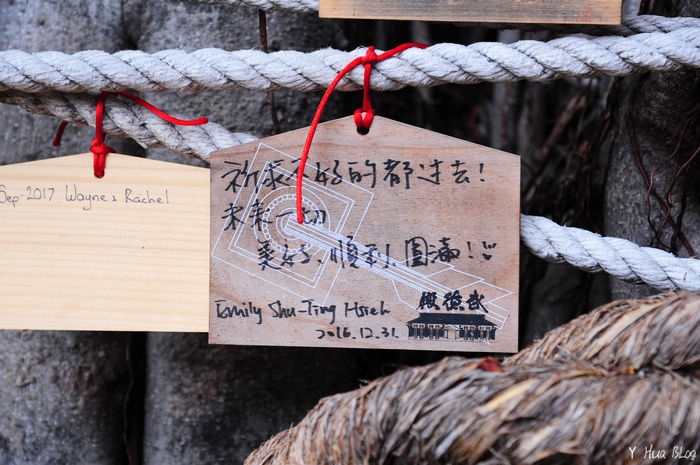 Sep-2017 Wayne & Rachel
祈求不好的都過去!
未來一切
美好、順利、圓滿!
Emily Shu-Ting Hsieh
2016.12.31
殿德武
Y Hua BLog